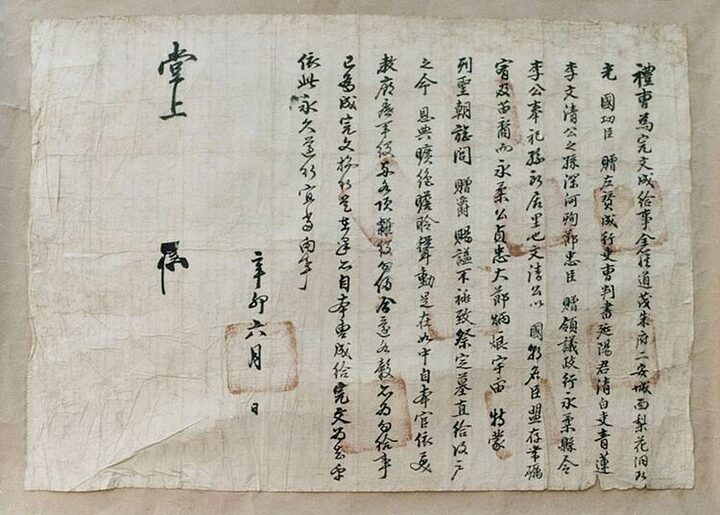 禮曹爲完文成給事全任道茂朱府二安城面梨花洞段
光 國功臣 贈左贊成行吏曹判書延陽君清白吏青蓮
李文清公之孫深河殉節忠臣 贈領議政行永柔縣令
李公奉祀孫所居里也文清公以 國朝名臣盟存帶礪
宥及苗裔而永柔公貞忠大節炳烺宇宙 特蒙
列聖朝旌閭 贈爵 賜諡不祧致祭定墓直給復戶
之令 恩典曠絶瞻聆聳動是在如中自本官依
教 烟戶 役 各項雜役勿侵 還 穀 勿給事
已爲成完文 自本曹成給完文
依此永久遵行宜當向事
辛卯六月 日
堂上